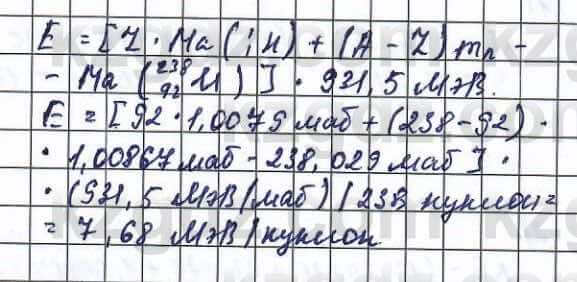 E = [Z · Ma (¦H) + (A - Z) mn -
- Ma (²³⁸₉₂U) ] · 931,5 МэВ.
E = [92 · 1,0079 маб + (238 - 92) ·
· 1,00867 маб - 238,029 маб ] ·
· (931,5 МэВ/маб) / 238 нуклон =
= 7,68 МэВ/нуклон